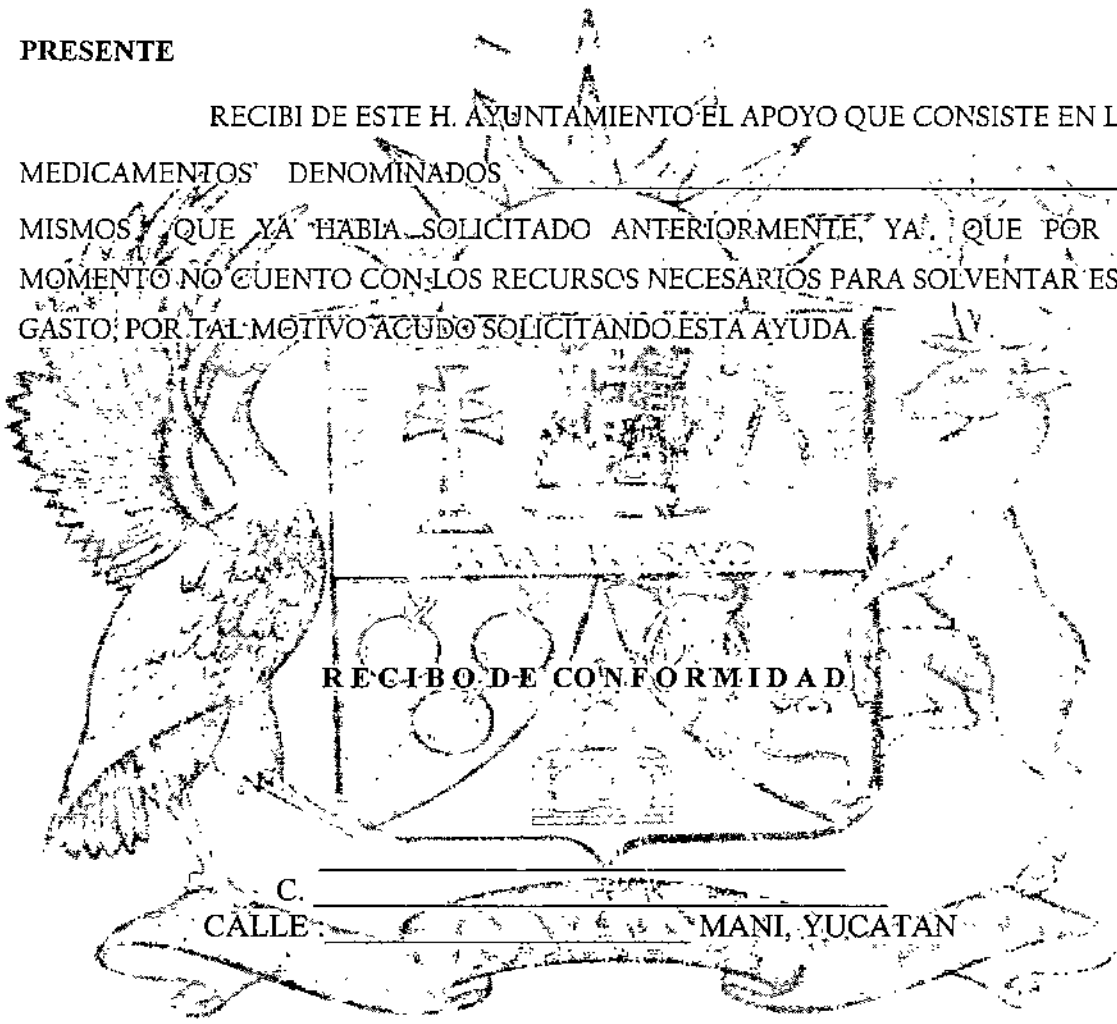 PRESENTE
RECIBI DE ESTE H. AYUNTAMIENTO EL APOYO QUE CONSISTE EN L
MEDICAMENTOS DENOMINADOS
MISMOS QUE YA HABIA SOLICITADO ANTERIORMENTE, YA QUE POR
MOMENTO NO CUENTO CON LOS RECURSOS NECESARIOS PARA SOLVENTAR ES
GASTO, POR TAL MOTIVO ACUDO SOLICITANDO ESTA AYUDA.
RECIBO DE CONFORMIDAD
C.
CALLE : MANI, YUCATAN